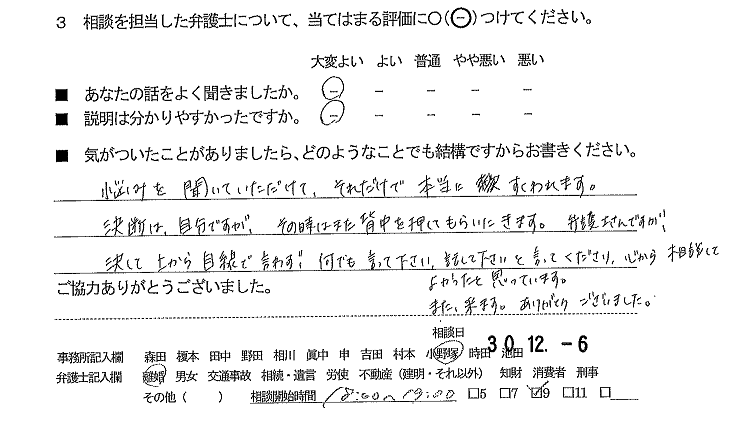 3 相談を担当した弁護士について、当てはまる評価に○(⊖)つけてください。
大変よい よい 普通 やや悪い 悪い
■ あなたの話をよく聞きましたか。 － － － － －
■ 説明は分かりやすかったですか。 － － － － －
■ 気がついたことがありましたら、どのようなことでも結構ですからお書きください。
悩みを聞いていただけて、それだけで本当に すくわれます。
決断は、自分ですが、その時はまた背中を押してもらいにきます。弁護士さんですが、
決して上から目線で言わず、何でも言って下さい、話して下さいと言ってくださり、心から相談して
よかったと思っています。
ご協力ありがとうございました。
また、来ます。ありがとうございました。
相談日
30.12.-6
事務所記入欄 森田 榎本 田中 野田 相川 眞中 申 吉田 村本 小野塚 時田 池田
弁護士記入欄 離婚 男女 交通事故 相続・遺言 労使 不動産（建明・それ以外） 知財 消費者 刑事
その他（ ） 相談開始時間 18:00~19:00 □5 □7 ☑9 □11 □